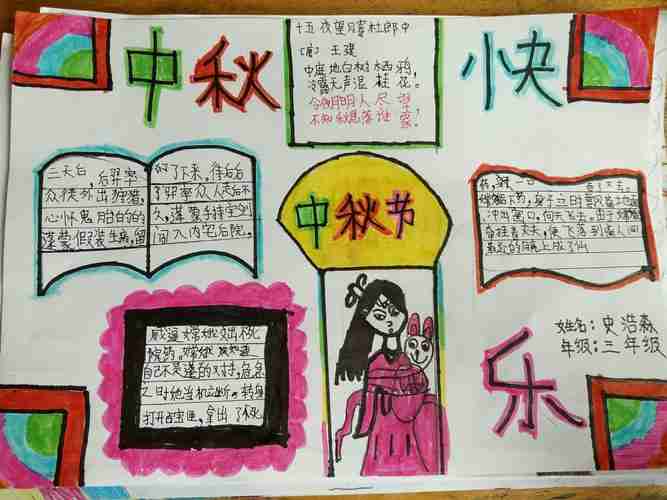 中秋
快
乐
十五夜望月寄杜郎中
(唐) 王建
中庭地白树栖鸦,
冷露无声湿桂花。
今夜月明人尽望
不知秋思落谁家!
三天后,后羿率
众徒外出狩猎,
心怀鬼胎的的
蓬蒙假装生病,留
了下来。待后
羿率众人走后不
久,蓬蒙手持宝剑
闯入内宅后院,
中秋节
嫦娥
药,身子立时飘
冲出窗口,向天飞去。由于嫦娥
牵挂着丈夫,便飞落到离人间
最近的月亮上成了仙
威逼嫦娥交出不死
药。嫦娥
自己不是蓬的对手,危急
之时她当机立断。转身
打开百宝匣,拿出了不死
姓名:史浩森
年级:三年级